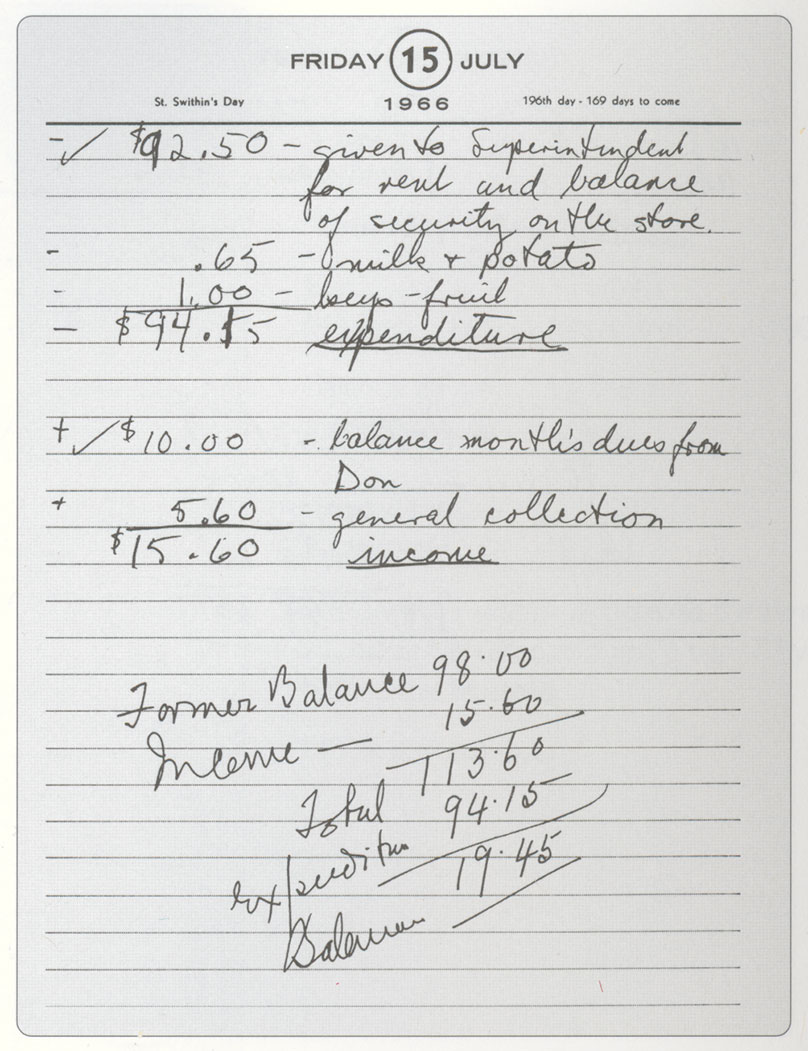 FRIDAY 15 JULY
St. Swithin's Day 1966 196th day - 169 days to come
- ✓ $92.50 - given to Superintendent
for rent and balance
of security on the store.
- .65 - milk + potato
- 1.00 - - fruit
- $94.15 expenditure
+ ✓ $10.00 - balance month's dues from
Don
+ 5.60 - general collection
$15.60 income
Former Balance 98.00
Income — 15.60
Total 113.60
Expenditure 94.15
Balance 19.45